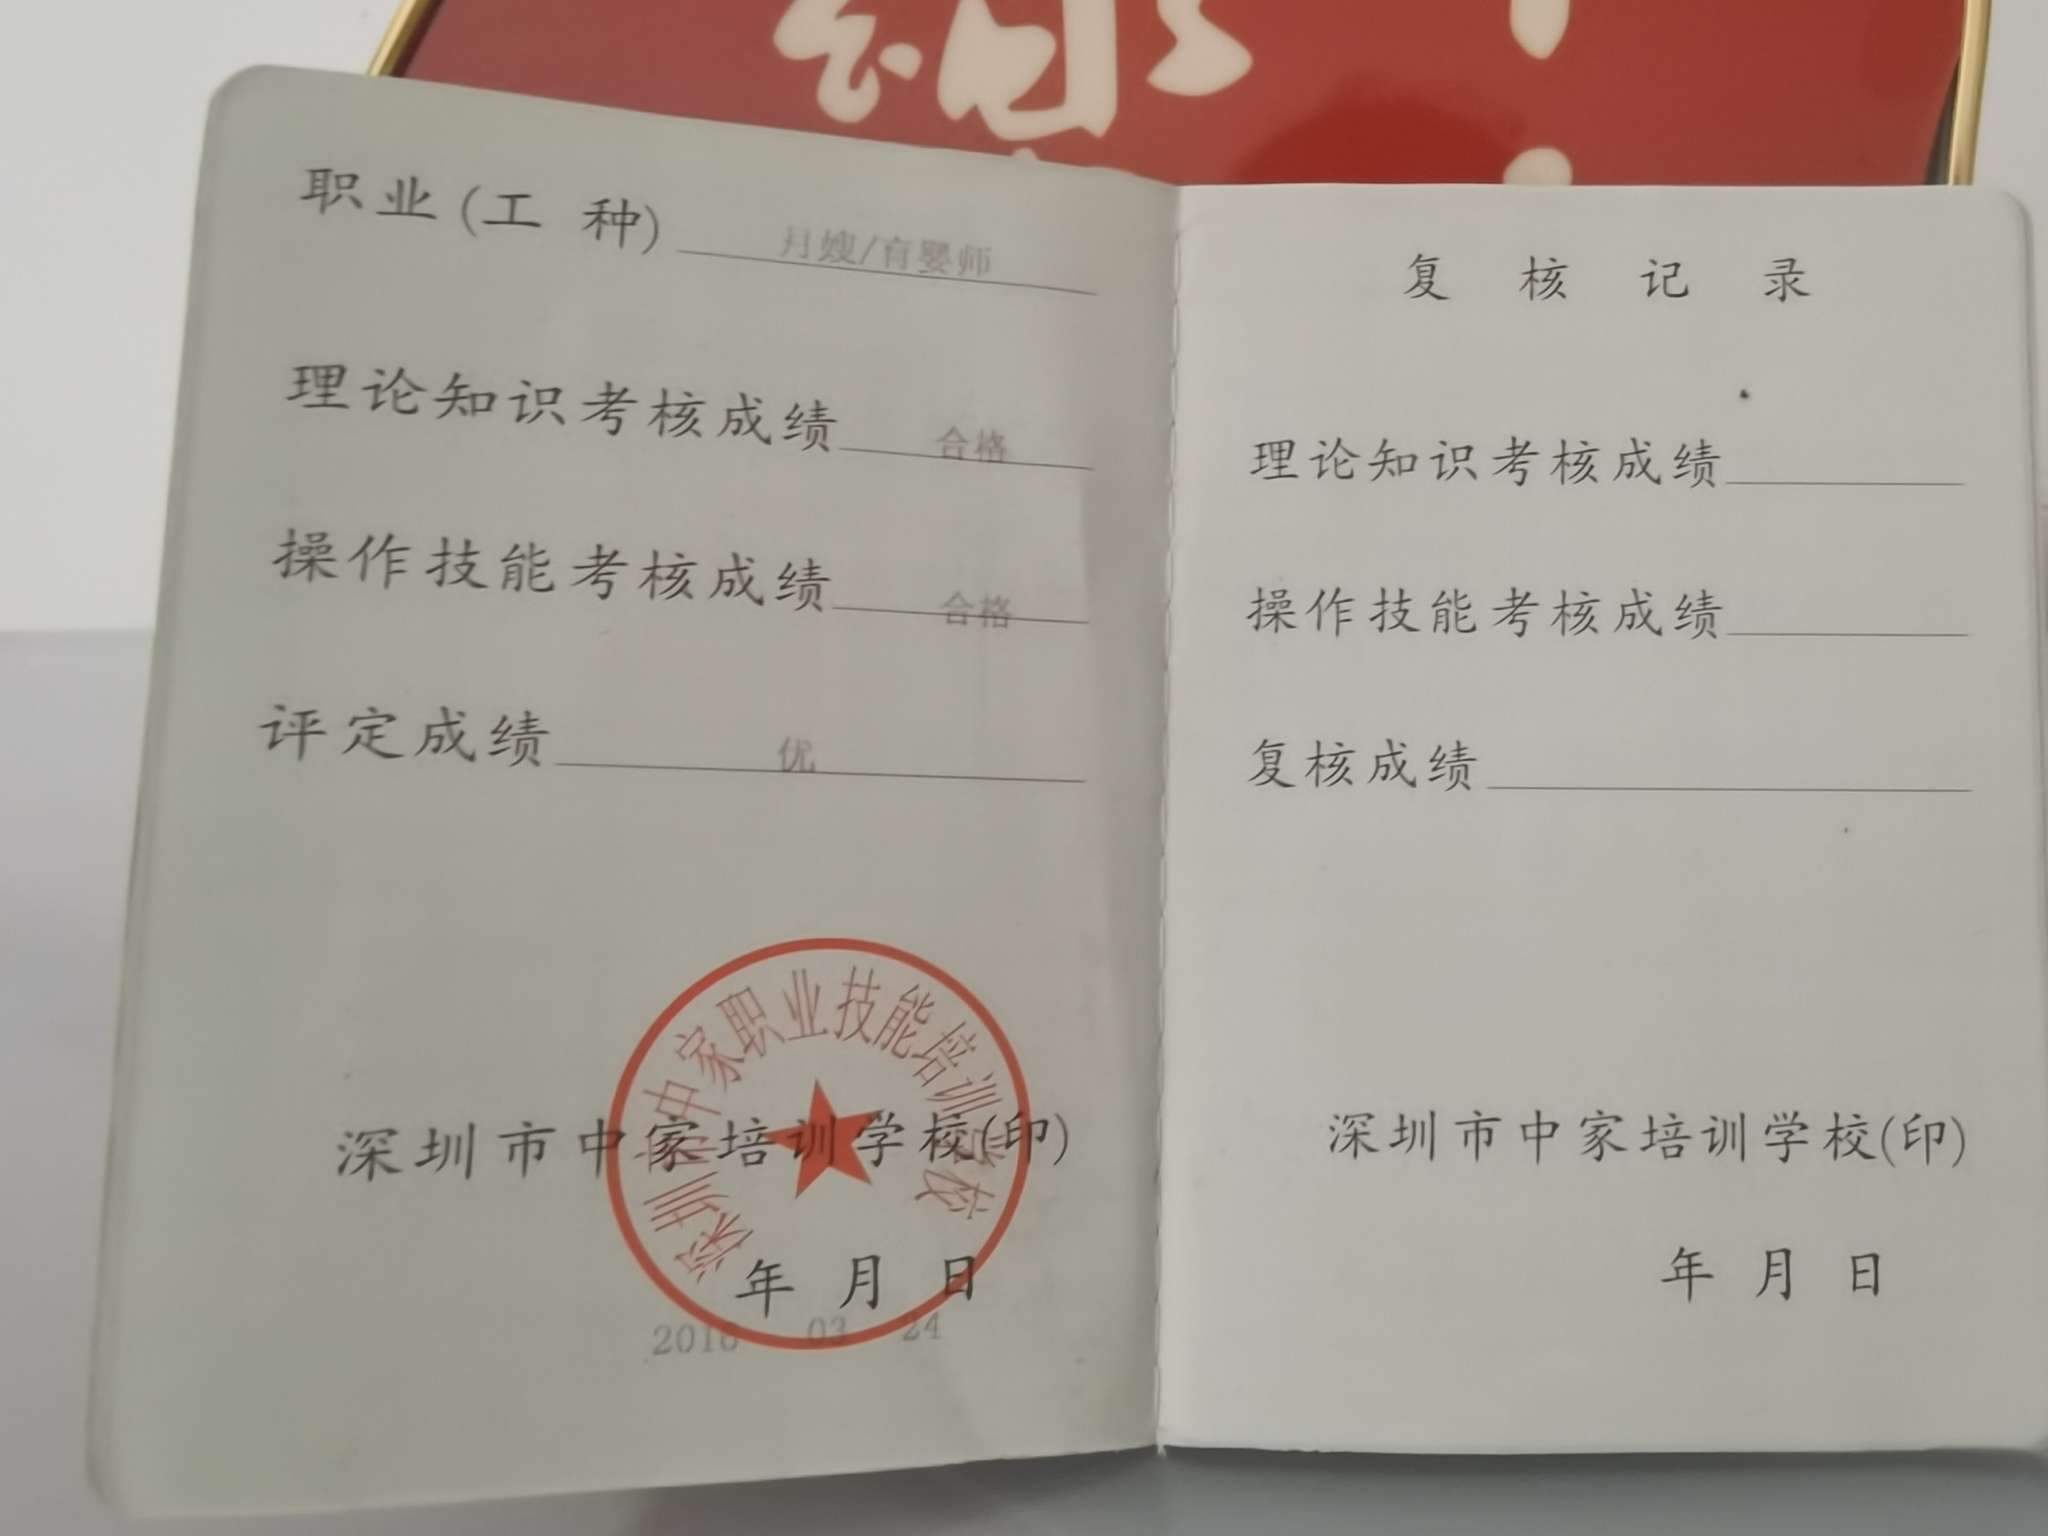 职业(工 种) 月嫂/育婴师
理论知识考核成绩 合格
操作技能考核成绩 合格
评定成绩 优
深圳市中家职业技能培训学校
深圳市中家培训学校(印)
年 月 日
2018 03 24
复 核 记 录
理论知识考核成绩
操作技能考核成绩
复核成绩
深圳市中家培训学校(印)
年 月 日